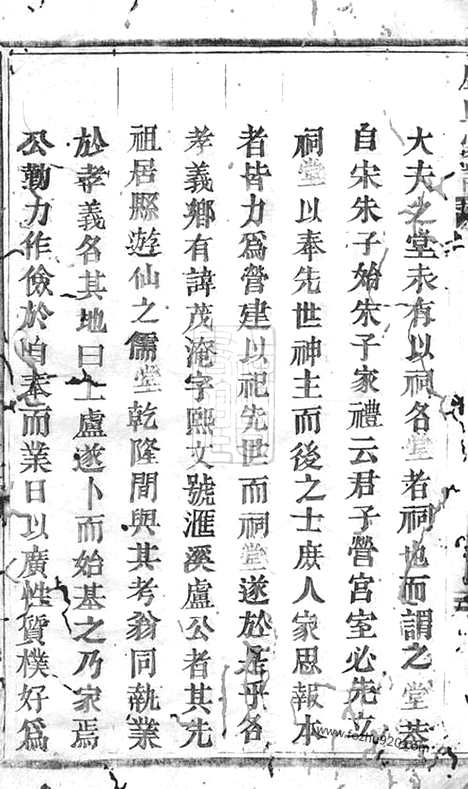 大夫之堂未有以祠名堂者祠也而謂之堂蓋
自宋朱子始朱子家禮云君子營宮室必先立
祠堂以奉先世神主而後之士庶人家思報本
者皆力為營建以祀先世而祠堂遂於是乎名
孝義鄉有諱茂淹字熙文號滙溪盧公者其先
祖居縣遊仙之儒堂乾隆間與其考翁同執業
於孝義名其地曰上盧遂卜而始基之乃家焉
公勤力作儉於自奉而業日以廣性質樸好為
www.fozhu920.com